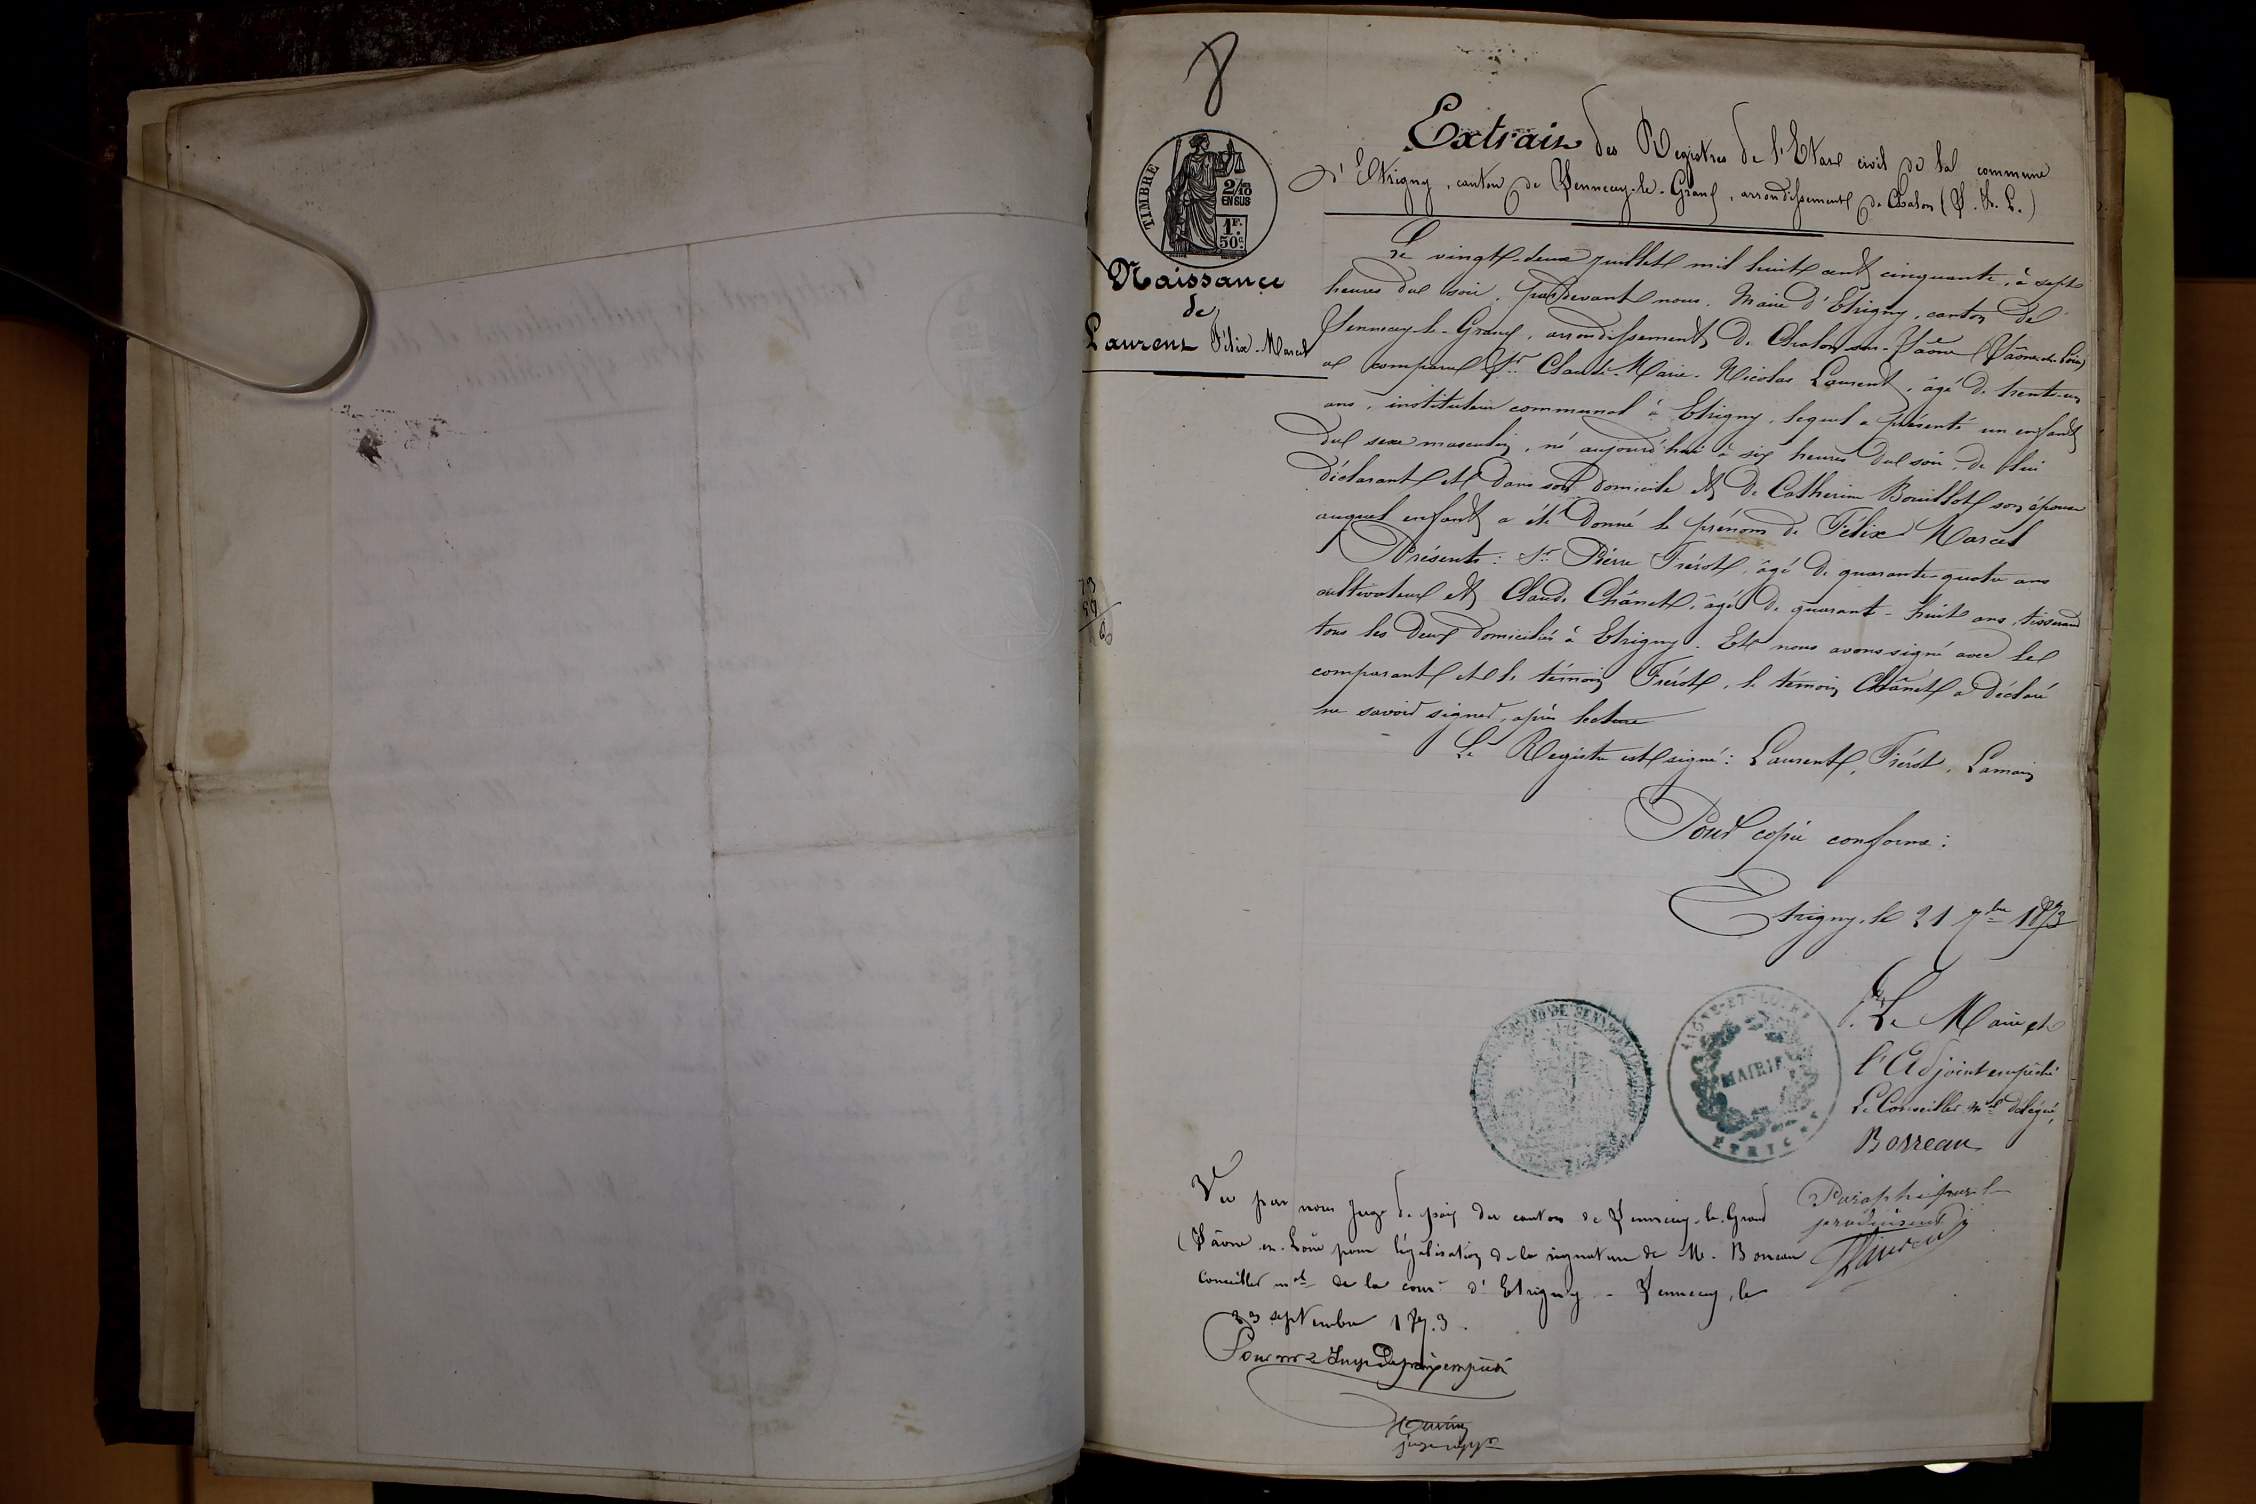 8
TIMBRE
2/10
EN SUS
1F.
50c
Extrait des Registres de l'Etat civil de la commune
d'Etrigny, canton de Sennecey-le-Grand, arrondissement de Chalon (S. & L.)
Naissance
de
Laurent Félix-Marcel
Le vingt-deux juillet mil huit cent cinquante, à sept
heures du soir, pardevant nous, Maire d'Etrigny, canton de
Sennecey-le-Grand, arrondissement de Chalon-sur-Saône (Saône-et-Loire)
a comparu Sr Claude-Marie-Nicolas Laurent, âgé de trente-un
ans, instituteur communal à Etrigny, lequel a présenté un enfant
du sexe masculin, né aujourd'hui à six heures du soir, de lui
déclarant et dans son domicile et de Catherine Bouillot son épouse
auquel enfant a été donné le prénom de Félix Marcel
Présents: Sr Pierre Frérot, âgé de quarante-quatre ans
cultivateur et Claude Chânet, âgé de quarante-huit ans, tisserand
tous les deux domiciliés à Etrigny. Et nous avons signé avec le
comparant et le témoin Frérot, le témoin Chânet a déclaré
ne savoir signer, après lecture
Le Registre est signé: Laurent, Frérot, Lamain
Pour copie conforme:
Etrigny, le 21 7bre 1873
P. Le Maire et
l'Adjoint empêché
Le Conseiller mal délégué,
Borreau
SAÔNE-ET-LOIRE
MAIRIE
ETRIGNY
Vu par nous juge de paix du canton de Sennecey-le-Grand
(Saône-et-Loire pour légalisation de la signature de M. Borreau
Conseiller mal de la comne d'Etrigny - Sennecey, le
23 septembre 1873.
Pour mr le Juge de paix empêché
juge supt
Paraphé par le
Laurent